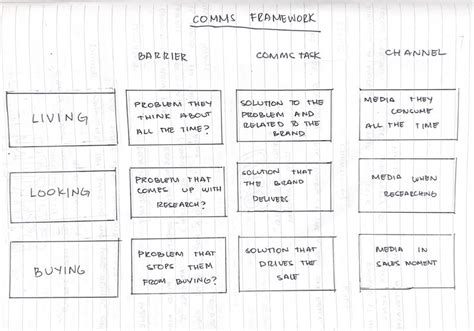 COMMS FRAMEWORK
BARRIER COMMS TASK CHANNEL
LIVING
PROBLEM THEY
THINK ABOUT
ALL THE TIME?
SOLUTION TO THE
PROBLEM AND
RELATED TO THE
BRAND
MEDIA THEY
CONSUME
ALL THE TIME
LOOKING
PROBLEM THAT
COMES UP WITH
RESEARCH?
SOLUTION THAT
THE BRAND
DELIVERS
MEDIA WHEN
RESEARCHING
BUYING
PROBLEM THAT
STOPS THEM
FROM BUYING?
SOLUTION THAT
DRIVES THE
SALE
MEDIA IN
SALES MOMENT